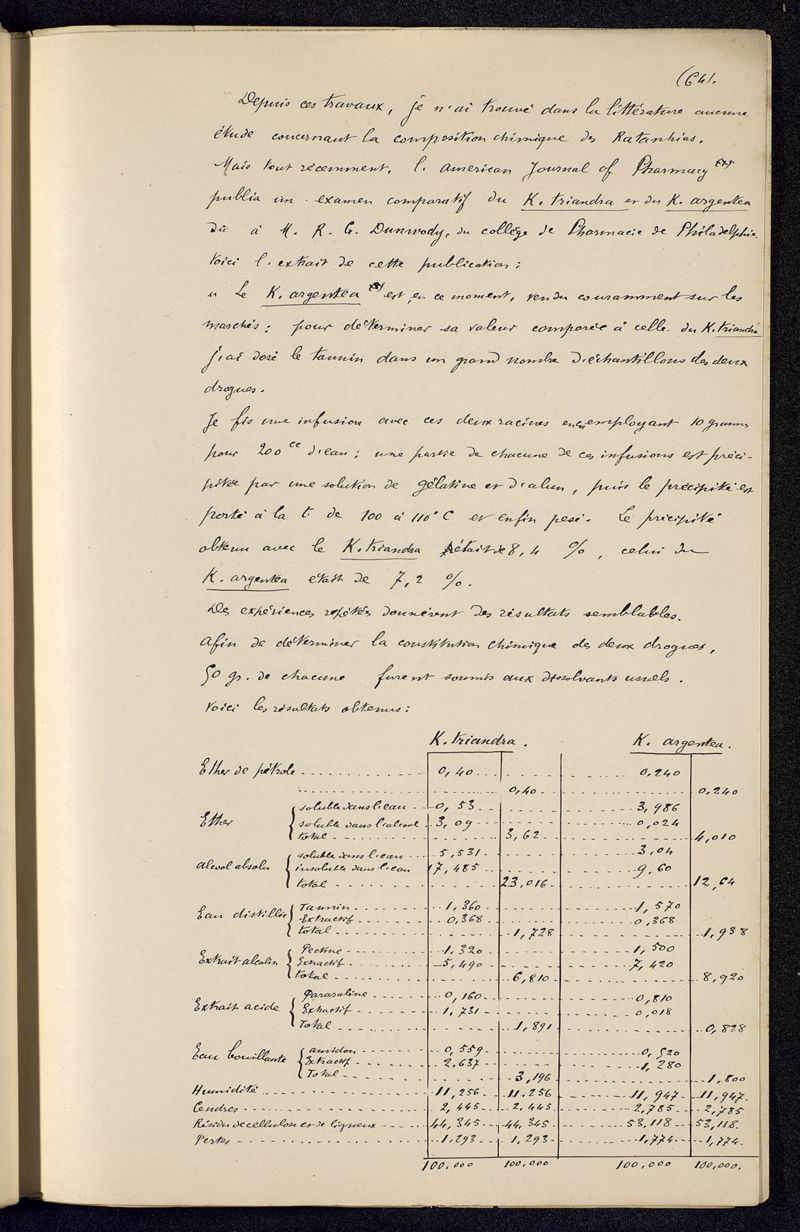 (64).
Depuis ces travaux, je n'ai trouvé dans la littérature aucune
étude concernant la composition chimique des Ratanhias.
Mais tout récemment, l'American Journal of Pharmacy (x)
publia un examen comparatif du K. triandra et du K. argentea
dû à M. R. G. Dunwody, du collège de Pharmacie de Philadelphie
Voici l'extrait de cette publication :
" Le K. argentea (x) est, en ce moment, vendu couramment sur les
marchés ; pour déterminer sa valeur comparée à celle du K. triandra
j'ai dosé le tannin dans un grand nombre d'échantillons des deux
drogues.
Je fis une infusion avec ces deux racines en employant 10 grammes
pour 200 cc d'eau ; une partie de chacune de ces infusions est préci-
pitée par une solution de gélatine et d'alun, puis le précipité est
porté à la t. de 100 à 110° C et enfin pesé. Le précipité
obtenu avec le K. triandra était de 8,4 %, celui du
K. argentea était de 7,2 %.
Des expériences répétées donnèrent des résultats semblables.
Afin de déterminer la constitution chimique des deux drogues,
50 gr. de chacune furent soumis aux dissolvants usuels.
Voici les résultats obtenus :
K. triandra. K. argentea.
Ether de pétrole 0,40 0,240
0,40 0,240
Ether soluble dans l'eau 0,53 3,986
soluble dans l'alcool 3,09 0,024
total 3,62 4,010
Alcool absolu soluble dans l'eau 5,531 3,04
insoluble dans l'eau 17,485 9,60
total 23,016 12,64
Eau distillée Tannin 1,360 1,570
Extractif 0,368 0,368
total 1,728 1,938
Extrait alcalin Pectine 1,320 1,500
Extractif 5,490 7,420
total 6,810 8,920
Extrait acide Pararabine 0,160 0,810
Extractif 1,731 0,018
Total 1,891 0,828
Eau bouillante amidon 0,559 0,520
Extractif 2,637 1,280
Total 3,196 1,800
Humidité 11,256 11,256 11,947 11,947
Cendres 2,445 2,445 2,785 2,785
Résidu de cellulose et de ligneux 44,345 44,345 53,118 53,118
Pertes 1,293 1,293 1,774 1,774
100,000 100,000 100,000 100,000